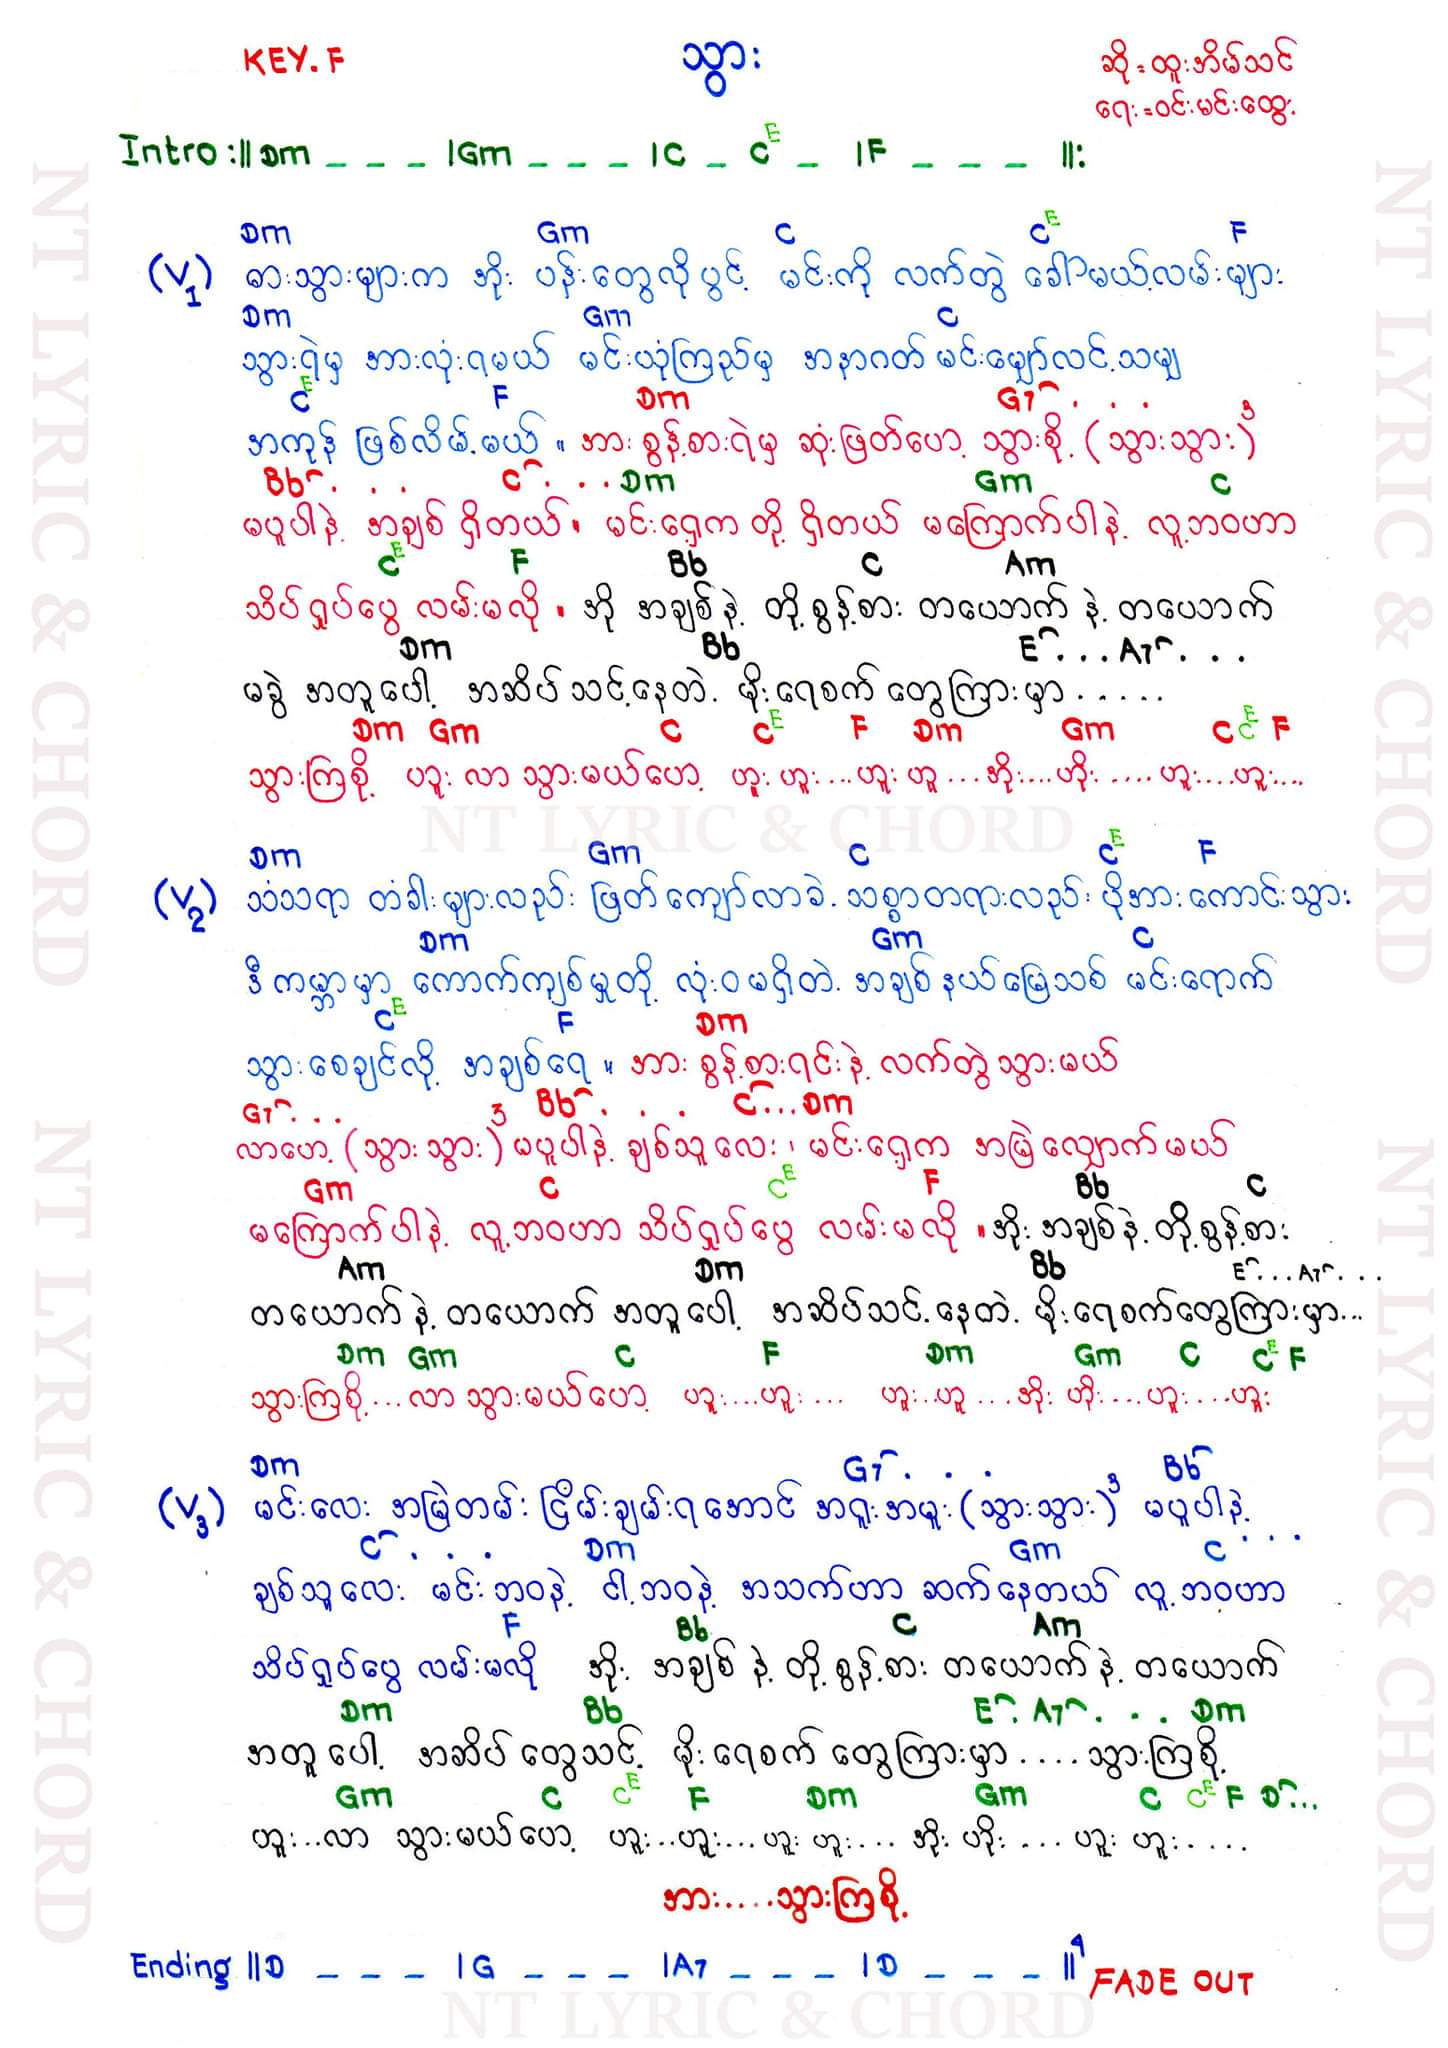 KEY.F
သွား
ဆို = ထူးအိမ်သင်
ရေး = ဝင်းမင်းထွေး
Intro :|| Dm _ _ _ |Gm _ _ _ |C _ C E _ |F _ _ _ ||:
Dm Gm C C E F
(V1) ဓားသွားများက အိုး ပန်းတွေလိုပွင့် မင်းကို လက်တွဲ ခေါ်မယ့်လမ်းများ
Dm Gm C
သွားရဲမှ အားလုံးရမယ် မင်းယုံကြည်မှ အနာဂတ် မင်းမျှော်လင့်သမျှ
C E F Dm G7 . . .
အကုန် ဖြစ်လိမ့်မယ် ။ အား စွန့်စားရဲမှ ဆုံးဖြတ်ဟော့ သွားစို့ (သွားသွား)3
Bb . . . C . . . Dm Gm C
မပူပါနဲ့ အချစ် ရှိတယ် ။ မင်းရှေ့က တို့ ရှိတယ် မကြောက်ပါနဲ့ လူ့ဘဝဟာ
C E F Bb C Am
သိပ်ရှုပ်ပွေ လမ်းမလို ။ အို အချစ်နဲ့ တို့စွန့်စား တယောက်နဲ့ တယောက်
Dm Bb E . . . A7 . . .
မခွဲ အတူပေါ့ အဆိပ်သင့်နေတဲ့ မိုးရေစက်တွေကြားမှာ ......
Dm Gm C C E F Dm Gm C C E F
သွားကြစို့ ဟူး လာ သွားမယ်ဟော့ ဟူး ဟူး ... ဟူး ဟူ ... အိုး ... ဟိုး .... ဟူး .... ဟူး ...
NT LYRIC & CHORD
Dm Gm C C E F
(V2) သံသရာ တံခါးများလည်း ဖြတ်ကျော်လာခဲ့ သစ္စာတရားလည်း ပိုအားကောင်းသွား
Dm Gm C
ဒီကမ္ဘာမှာ ကောက်ကျစ်မှုတို့ လုံးဝမရှိတဲ့ အချစ်နယ်မြေသစ် မင်းရောက်
C E F Dm
သွားစေချင်လို့ အချစ်ရေ ။ အား စွန့်စားရင်းနဲ့ လက်တွဲသွားမယ်
G7 . . . Bb . . . C . . . Dm
လာဟော့ (သွားသွား)3 မပူပါနဲ့ ချစ်သူလေး ၊ မင်းရှေ့က အမြဲလျှောက်မယ်
Gm C C E F Bb C
မကြောက်ပါနဲ့ လူ့ဘဝဟာ သိပ်ရှုပ်ပွေ လမ်းမလို ။ အိုး အချစ်နဲ့ တို့စွန့်စား
Am Dm Bb E . . . A7 . . .
တယောက်နဲ့ တယောက် အတူပေါ့ အဆိပ်သင့်နေတဲ့ မိုးရေစက်တွေကြားမှာ ...
Dm Gm C F Dm Gm C C E F
သွားကြစို့ ... လာ သွားမယ်ဟော့ ဟူး ... ဟူး ... ဟူး ... ဟူ ... အိုး ဟိုး .... ဟူး .... ဟူး
Dm G7 . . . Bb
(V3) မင်းလေး အမြဲတမ်း ငြိမ်းချမ်းရအောင် အရူးအမူး (သွားသွား)3 မပူပါနဲ့
C . . . Dm Gm C . . .
ချစ်သူလေး မင်းဘဝနဲ့ ငါ့ဘဝနဲ့ အသက်ဟာ ဆက်နေတယ် လူ့ဘဝဟာ
F Bb C Am
သိပ်ရှုပ်ပွေ လမ်းမလို အိုး အချစ်နဲ့ တို့စွန့်စား တယောက်နဲ့ တယောက်
Dm Bb E . A7 . . . Dm
အတူပေါ့ အဆိပ်တွေသင့် မိုးရေစက်တွေကြားမှာ .... သွားကြစို့
Gm C C E F Dm Gm C C E F D ...
ဟူး ... လာ သွားမယ်ဟော့ ဟူး ... ဟူး ... ဟူး ဟူး ... အိုး ဟိုး ... ဟူး ဟူး ....
အား .... သွားကြစို့
Ending ||D _ _ _ |G _ _ _ |A7 _ _ _ |D _ _ _ ||4 FADE OUT
NT LYRIC & CHORD
NT LYRIC & CHORD
NT LYRIC & CHORD
NT LYRIC & CHORD
NT LYRIC & CHORD